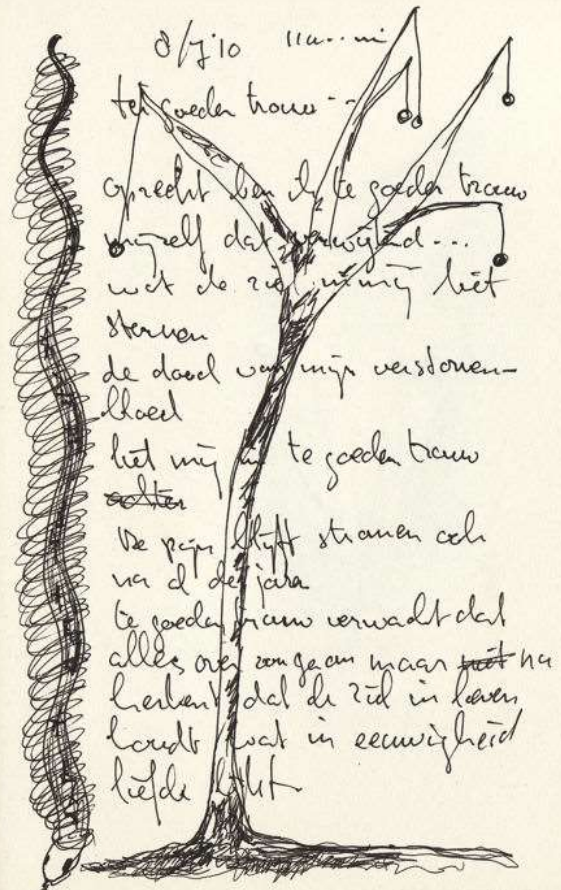 8/7'10
te goeder trouw --
oprecht ben ik te goeder trouw
mijzelf dat verwijtend...
wat de ziel in mij liet
sterven
de dood van mijn verstorven
bloed
liet mij in te goeder trouw
achter
De pijn blijft stromen ook
na al die jaren
te goeder trouw verwacht dat
alles over zou gaan maar niet na
herkent dat de ziel in leven
houdt wat in eeuwigheid
liefde lijkt